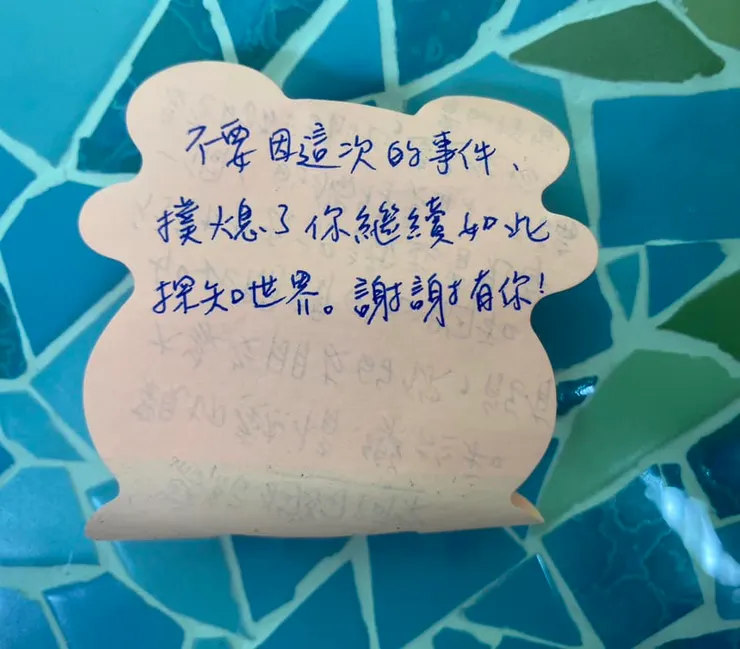 不要因這次的事件、
撲熄了你繼續如此
探知世界。謝謝有你!